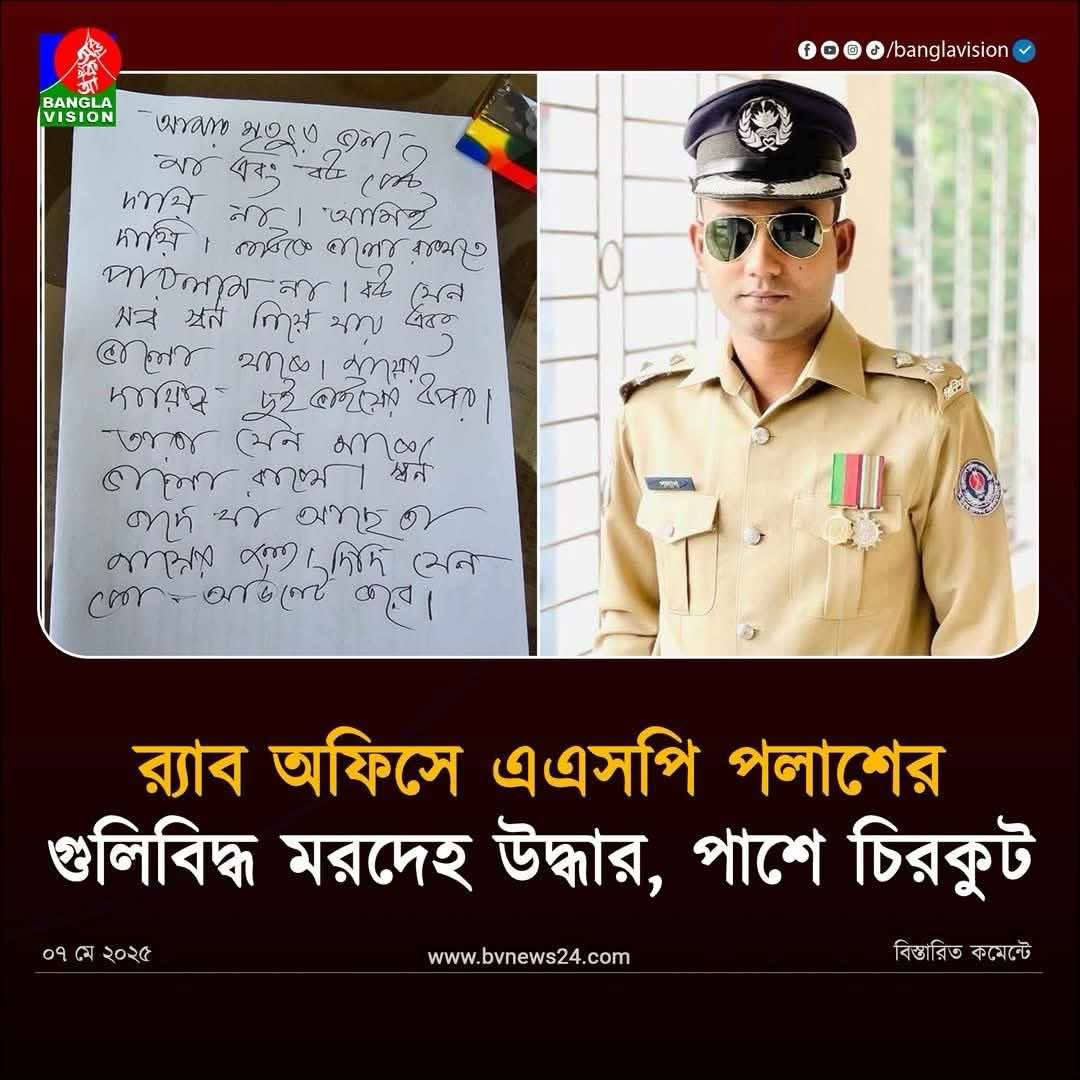 BANGLA
VISION
/banglavision
আমার মৃত্যুর জন্য
মা এবং বউ কেউ
দায়ি না। আমিই
দায়ি। কাউকে ভালো রাখতে
পারলাম না। বউ যেন
সব স্বর্ণ নিয়ে যায় এবং
ভালো থাকে। মায়ের
দায়িত্ব দুই ভাইয়ের উপর।
তারা যেন মাকে
ভালো রাখে। স্বর্ণ
বাদে যা আছে তা
মায়ের জন্য। দিদি যেন
কো-অর্ডিনেট করে।
র‍্যাব অফিসে এএসপি পলাশের
গুলিবিদ্ধ মরদেহ উদ্ধার, পাশে চিরকুট
০৭ মে ২০২৫
www.bvnews24.com
বিস্তারিত কমেন্টে